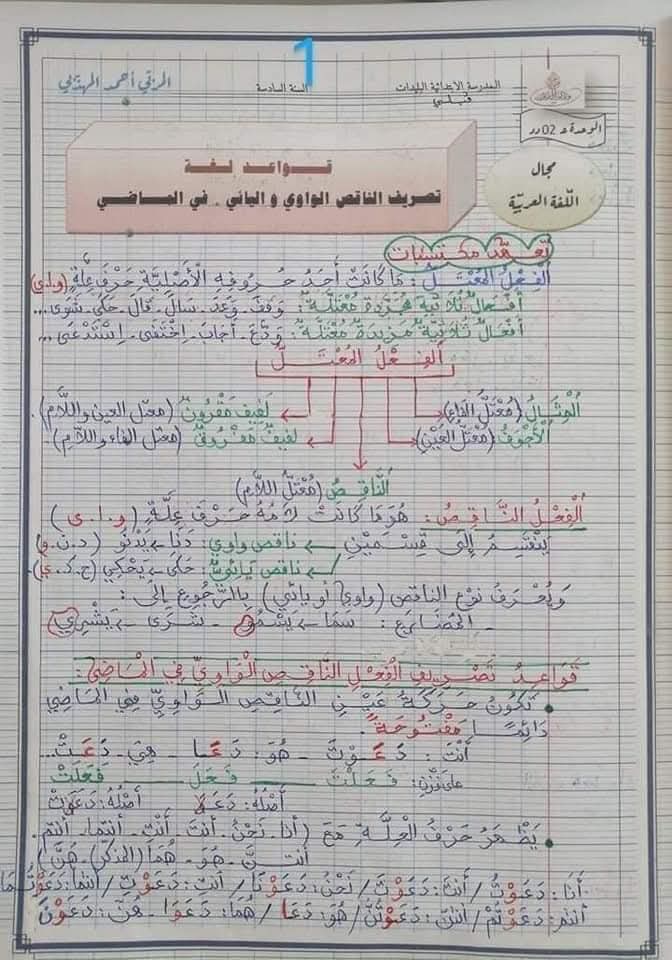 1
المدرسة الابتدائية البليدات
قبلي
السنة السادسة
المربّي أحمد المهذبي
الوحدة د 02 دد
مجال
اللّغة العربيّة
قـواعـد لـغـة
تصريف الناقص الواوي و اليائي . في المـاضـي
تعهّد مكتسبات
الْفِعْلُ الْمُعْتَلُّ : مَا كَانَتْ أَحَدُ حُرُوفِهِ الْأَصْلِيَّةِ حَرْفَ عِلَّةٍ (و.ا.ي)
أَفْعَالٌ ثُلَاثِيَّةٌ مُجَرَّدَةٌ مُعْتَلَّةٌ : وَقَفَ - وَعَدَ - سَالَ - قَالَ - حَكَى - شَوَى ...
أَفْعَالٌ ثُلَاثِيَّةٌ مَزِيدَةٌ مُعْتَلَّةٌ : وَدَّعَ - أَجَابَ - اِخْتَفَى - اِسْتَدْعَى ...
الْفِعْلُ الْمُعْتَلُّ
الْمِثَالُ (مُعْتَلُّ الْفَاءِ) لَفِيفٌ مَقْرُونٌ (معتل العين واللّام)
الْأَجْوَفُ (مُعْتَلُّ الْعَيْنِ) لَفِيفٌ مَفْرُوقٌ (معتل الفاء واللّام)
النَّاقِصُ (مُعْتَلُّ اللَّامِ)
الْفِعْلُ النَّاقِصُ : هُوَ مَا كَانَتْ لَامُهُ حَرْفَ عِلَّةٍ (و.ا.ى)
يَنْقَسِمُ إِلَى قِسْمَيْنِ ← ناقص واوي : دَنَا ← يَدْنُو (د.ن.و)
← ناقص يَائِيّ : حَكَى ← يَحْكِي (ح.ك.ي)
وَيُعْرَفُ نَوْعُ الناقص (واوي أو يائي) بِالرُّجُوعِ إِلَى :
- الْمُضَارِعِ : سَمَا ← يَسْمُو - شَرَى ← يَشْرِي
قَوَاعِدُ تَصْرِيفِ الْفِعْلِ النَّاقِصِ الْوَاوِيِّ فِي الْمَاضِي :
• تَكُونُ حَرَكَةُ عَيْنِ النَّاقِصِ الْوَاوِيِّ فِي الْمَاضِي
دَائِمًا مَفْتُوحَةً .
أَنْتَ : دَعَوْتَ - هُوَ : دَعَا - هِيَ - دَعَتْ ...
على وَزْنِ : فَعَلْتَ ــ فَعَلَ ــ فَعَلَتْ
أَصْلُهُ : دَعَوَ أَصْلُهُ : دَعَوَتْ
• يَظْهَرُ حَرْفُ الْعِلَّةِ مَعَ (أنا - نَحْنُ - أنتَ - أنْتِ - أنتما - أنتم .
أنتنَّ - هُوَ - هُمَا (المذكر) - هُنَّ)
أَنَا : دَعَوْتُ / أَنْتَ : دَعَوْتَ / نَحْنُ : دَعَوْنَا / أنتِ : دَعَوْتِ / أنتما : دَعَوْتُمَا
أنتم : دَعَوْتُمْ / أنتنّ : دَعَوْتُنَّ / هُوَ : دَعَا / هُمَا : دَعَوَا - هُنَّ : دَعَوْنَ